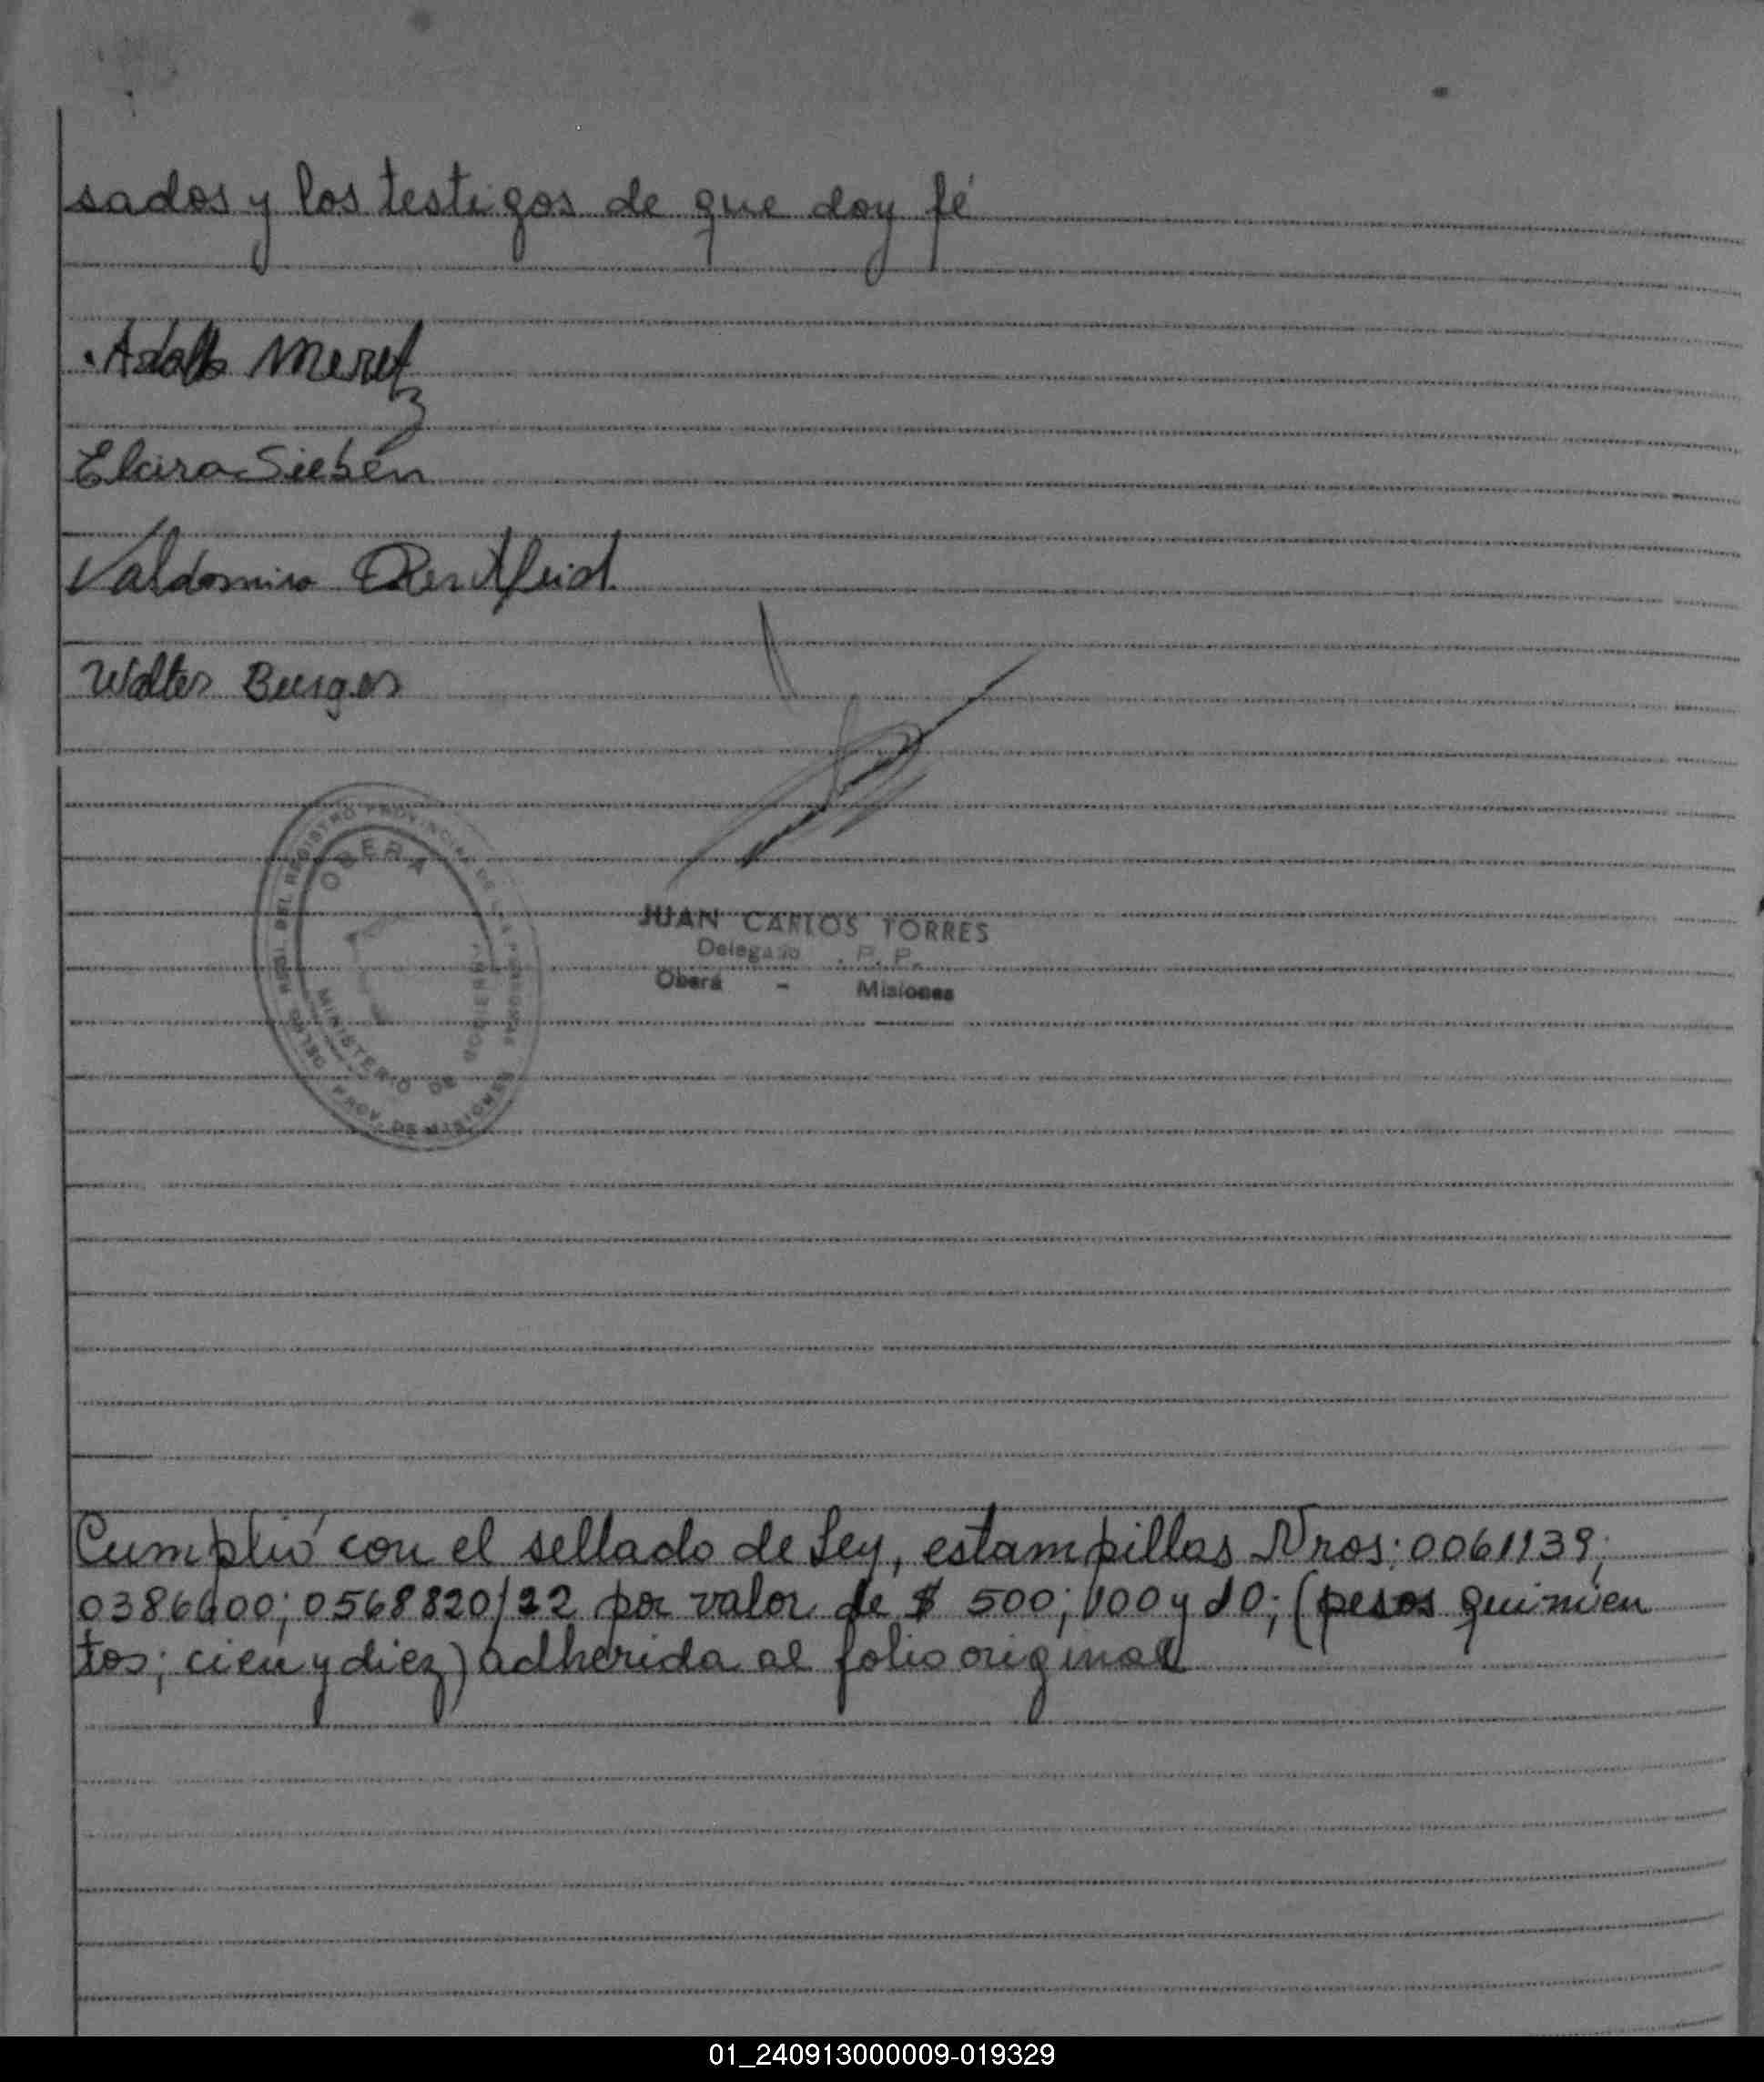 sados y los testigos de que doy fé
Adolfo Meretz
Elcira Sieben
Valdomiro
Walter Burgos
OBERA
MINISTERIO DE GOBIERNO
PROV. DE MISIONES
JUAN CARLOS TORRES
Delegado P. P.
Oberá - Misiones
Cumplió con el sellado de Ley, estampillas Nros: 0061139;
0386600; 0568820/22 por valor de $ 500; 100 y 10; (pesos quinien
tos; cien y diez) adherida al folio original
01_240913000009-019329